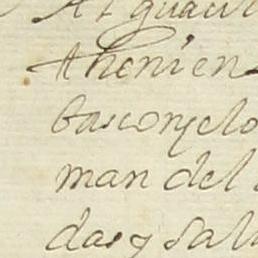 Al guacil
theniente
basconzelo
man del
das y sal